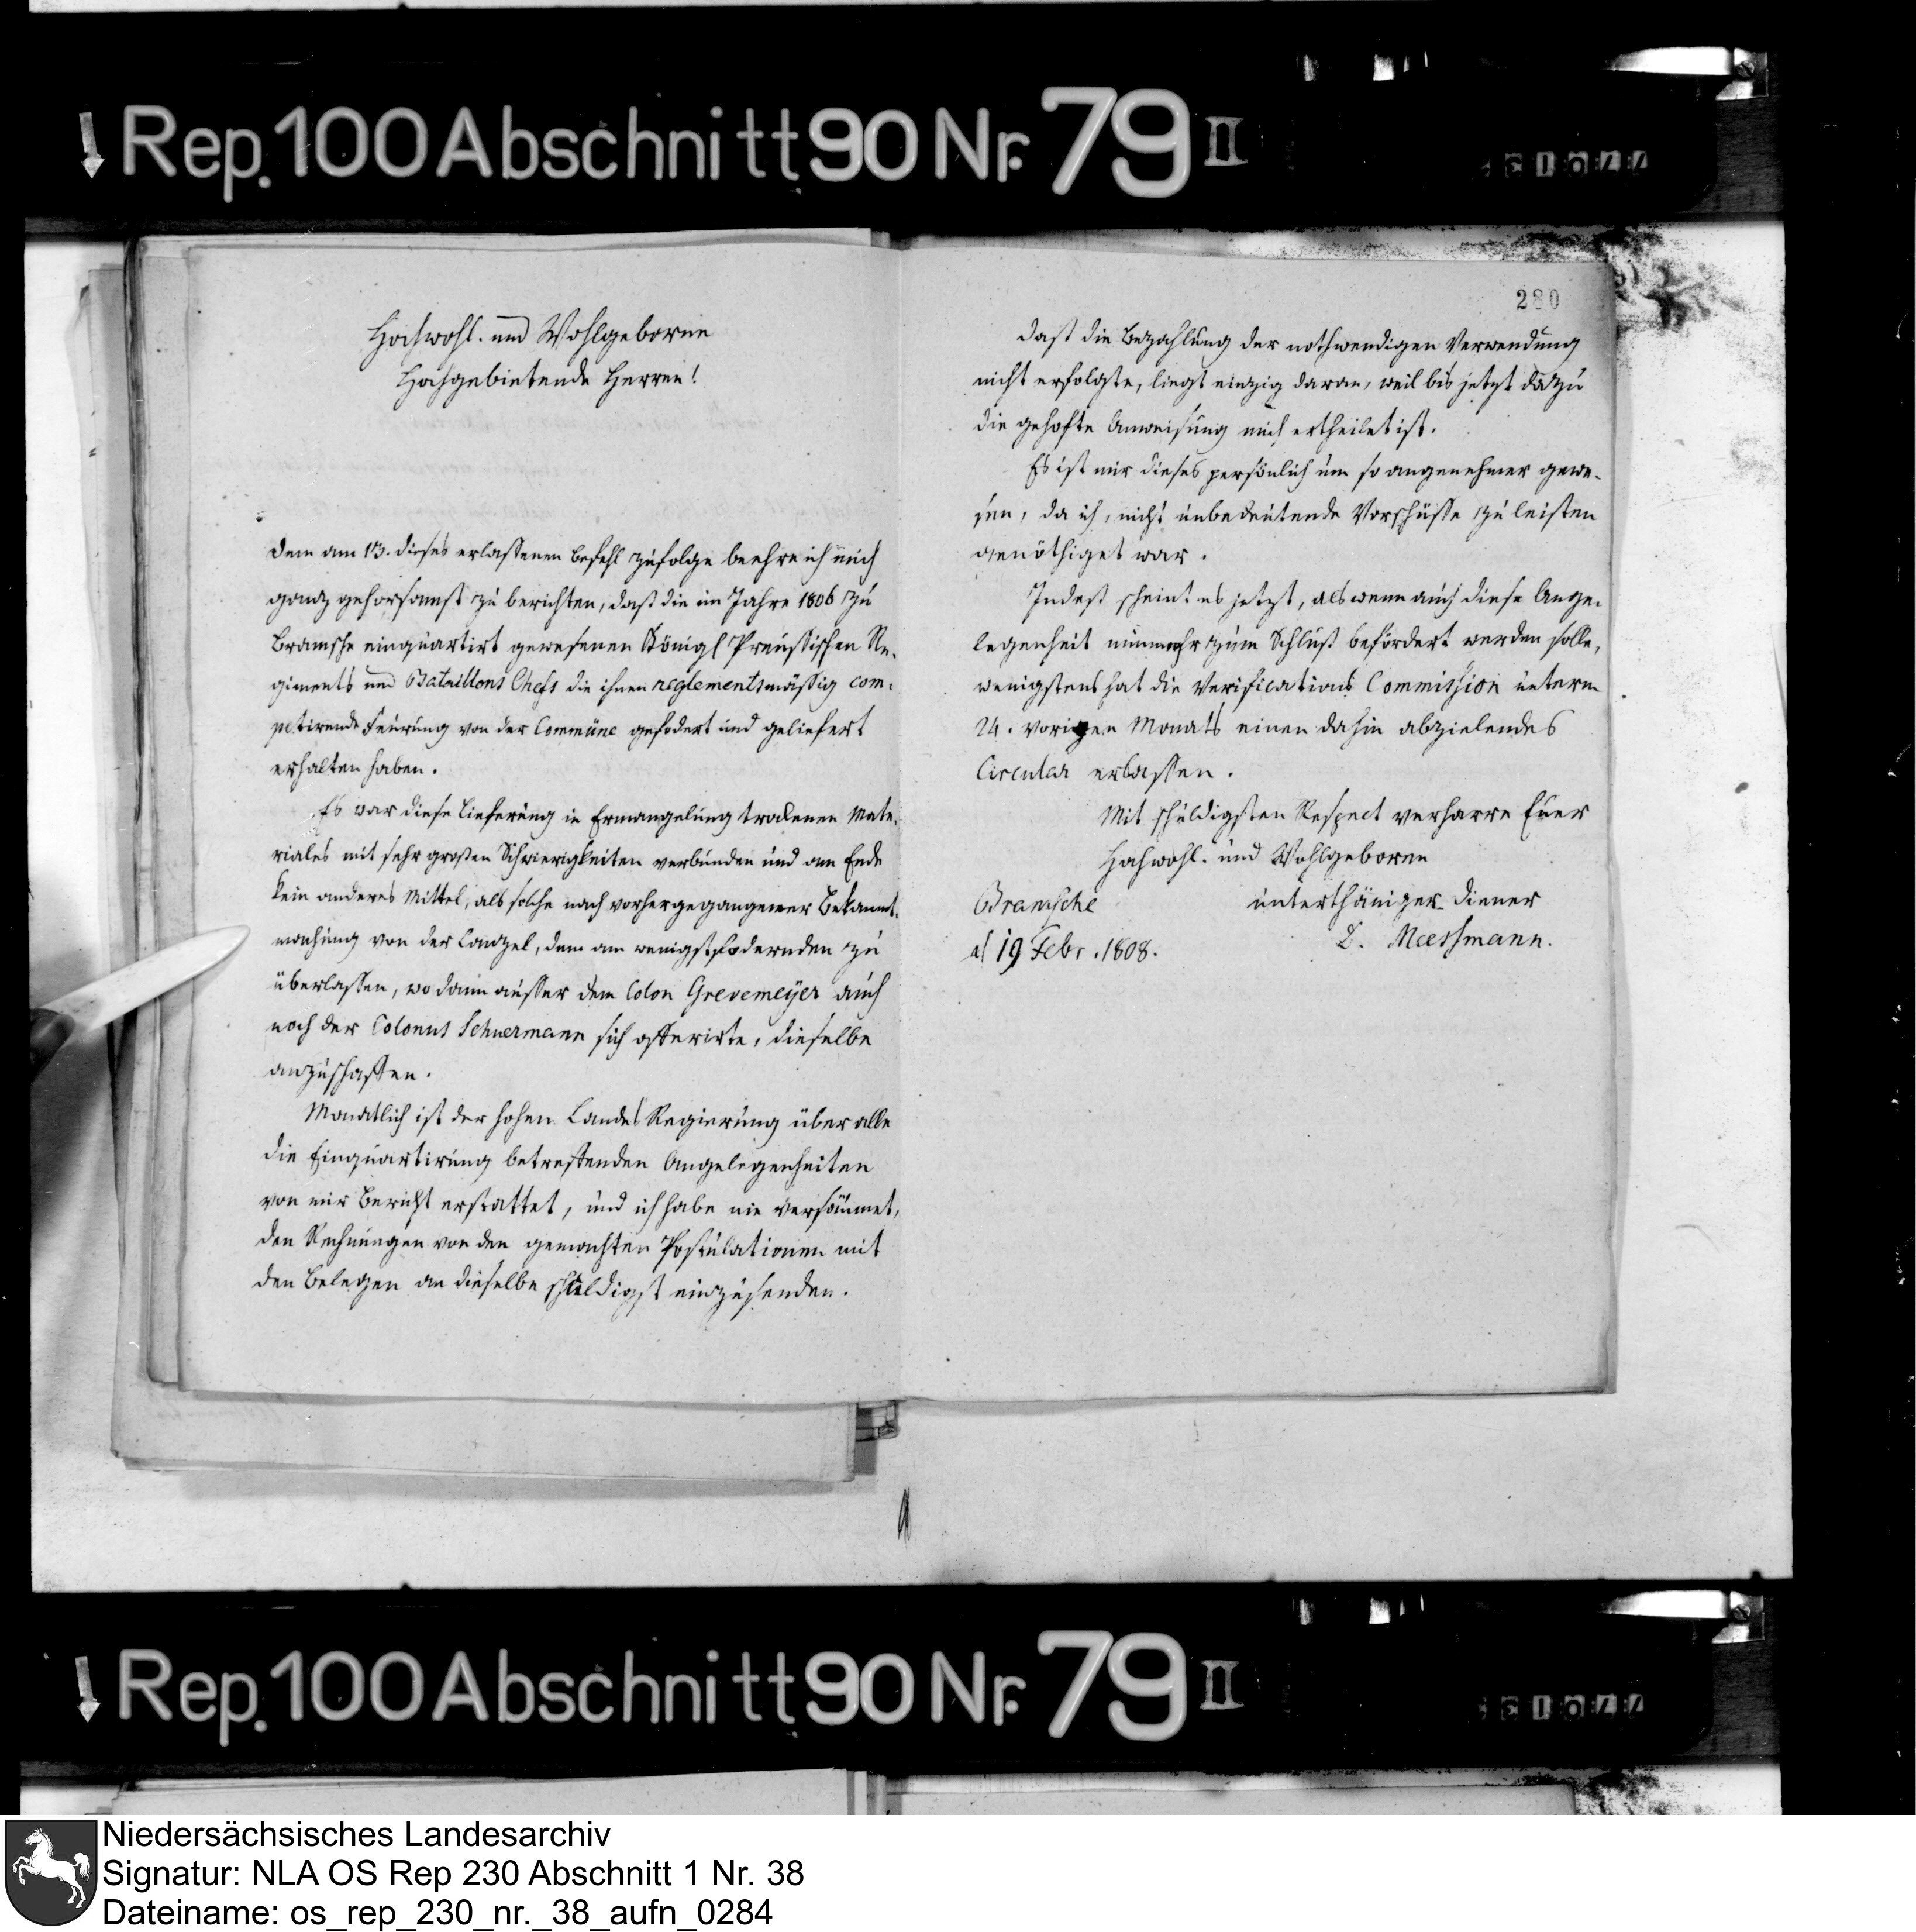 Rep. 100 Abschnitt 90 Nr. 79 II
Hochwohl. und Wohlgeborne
Hochgebietende Herren!
Dem am 13. dieses erlassenen Befehl zufolge beehre ich mich
ganz gehorsamst zu berichten, daß die im Jahre 1806 zu
Bramsche einquartirt gewesenen Königl Preussischen Re-
giments und Bataillons Chefs die ihnen reglementsmäßig com-
petirende Feurung von der Commüne gefodert und geliefert
erhalten haben.
Es war diese Lieferung in Ermangelung trockenen Mate-
riales mit sehr großen Schwierigkeiten verbunden und am Ende
kein anderes Mittel, als solche nach vorhergegangener Bekannt-
machung von der Canzel, dem am wenigstfodernden zu
überlassen, wo dann ausser dem Colon Grevemeÿer auch
noch der Colonus Schuermann sich offerirte, dieselbe
anzuschaffen.
Monatlich ist der hohen Landes Regierung über alle
die Einquartirung betreffenden Angelegenheiten
von mir Bericht erstattet, und ich habe nie versäumet,
den Rechnungen von den gemachten Postulationen mit
den Belegen an dieselbe schuldigst einzusenden.
280
Dast die Bezahlung der nothwendigen Verwendung
nicht erfolgte, liegt einzig daran, weil bis jetzt dazu
die gehofte Anweisung nich ertheilet ist.
Es ist mir dieses persönlich um so angenehmer gewe-
sen, da ich, nicht unbedeutende Vorschüsse zu leisten
genöthiget war.
Indest scheint es jetzt, als wenn auch diese Ange-
legenheit nunmehr zum Schluß befördert werden solle,
wenigstens hat die Verifications Commission unterm
24. vorigen Monats einen dahin abzielendes
Circular erlassen.
Mit schuldigsten Respect verharre Euer
Hochwohl. und Wohlgeboren
Bramsche
unterthäniger Diener
d 19 Febr. 1808.
L. Meessmann.
Rep. 100 Abschnitt 90 Nr. 79 II
Niedersächsisches Landesarchiv
Signatur: NLA OS Rep 230 Abschnitt 1 Nr. 38
Dateiname: os_rep_230_nr._38_aufn_0284